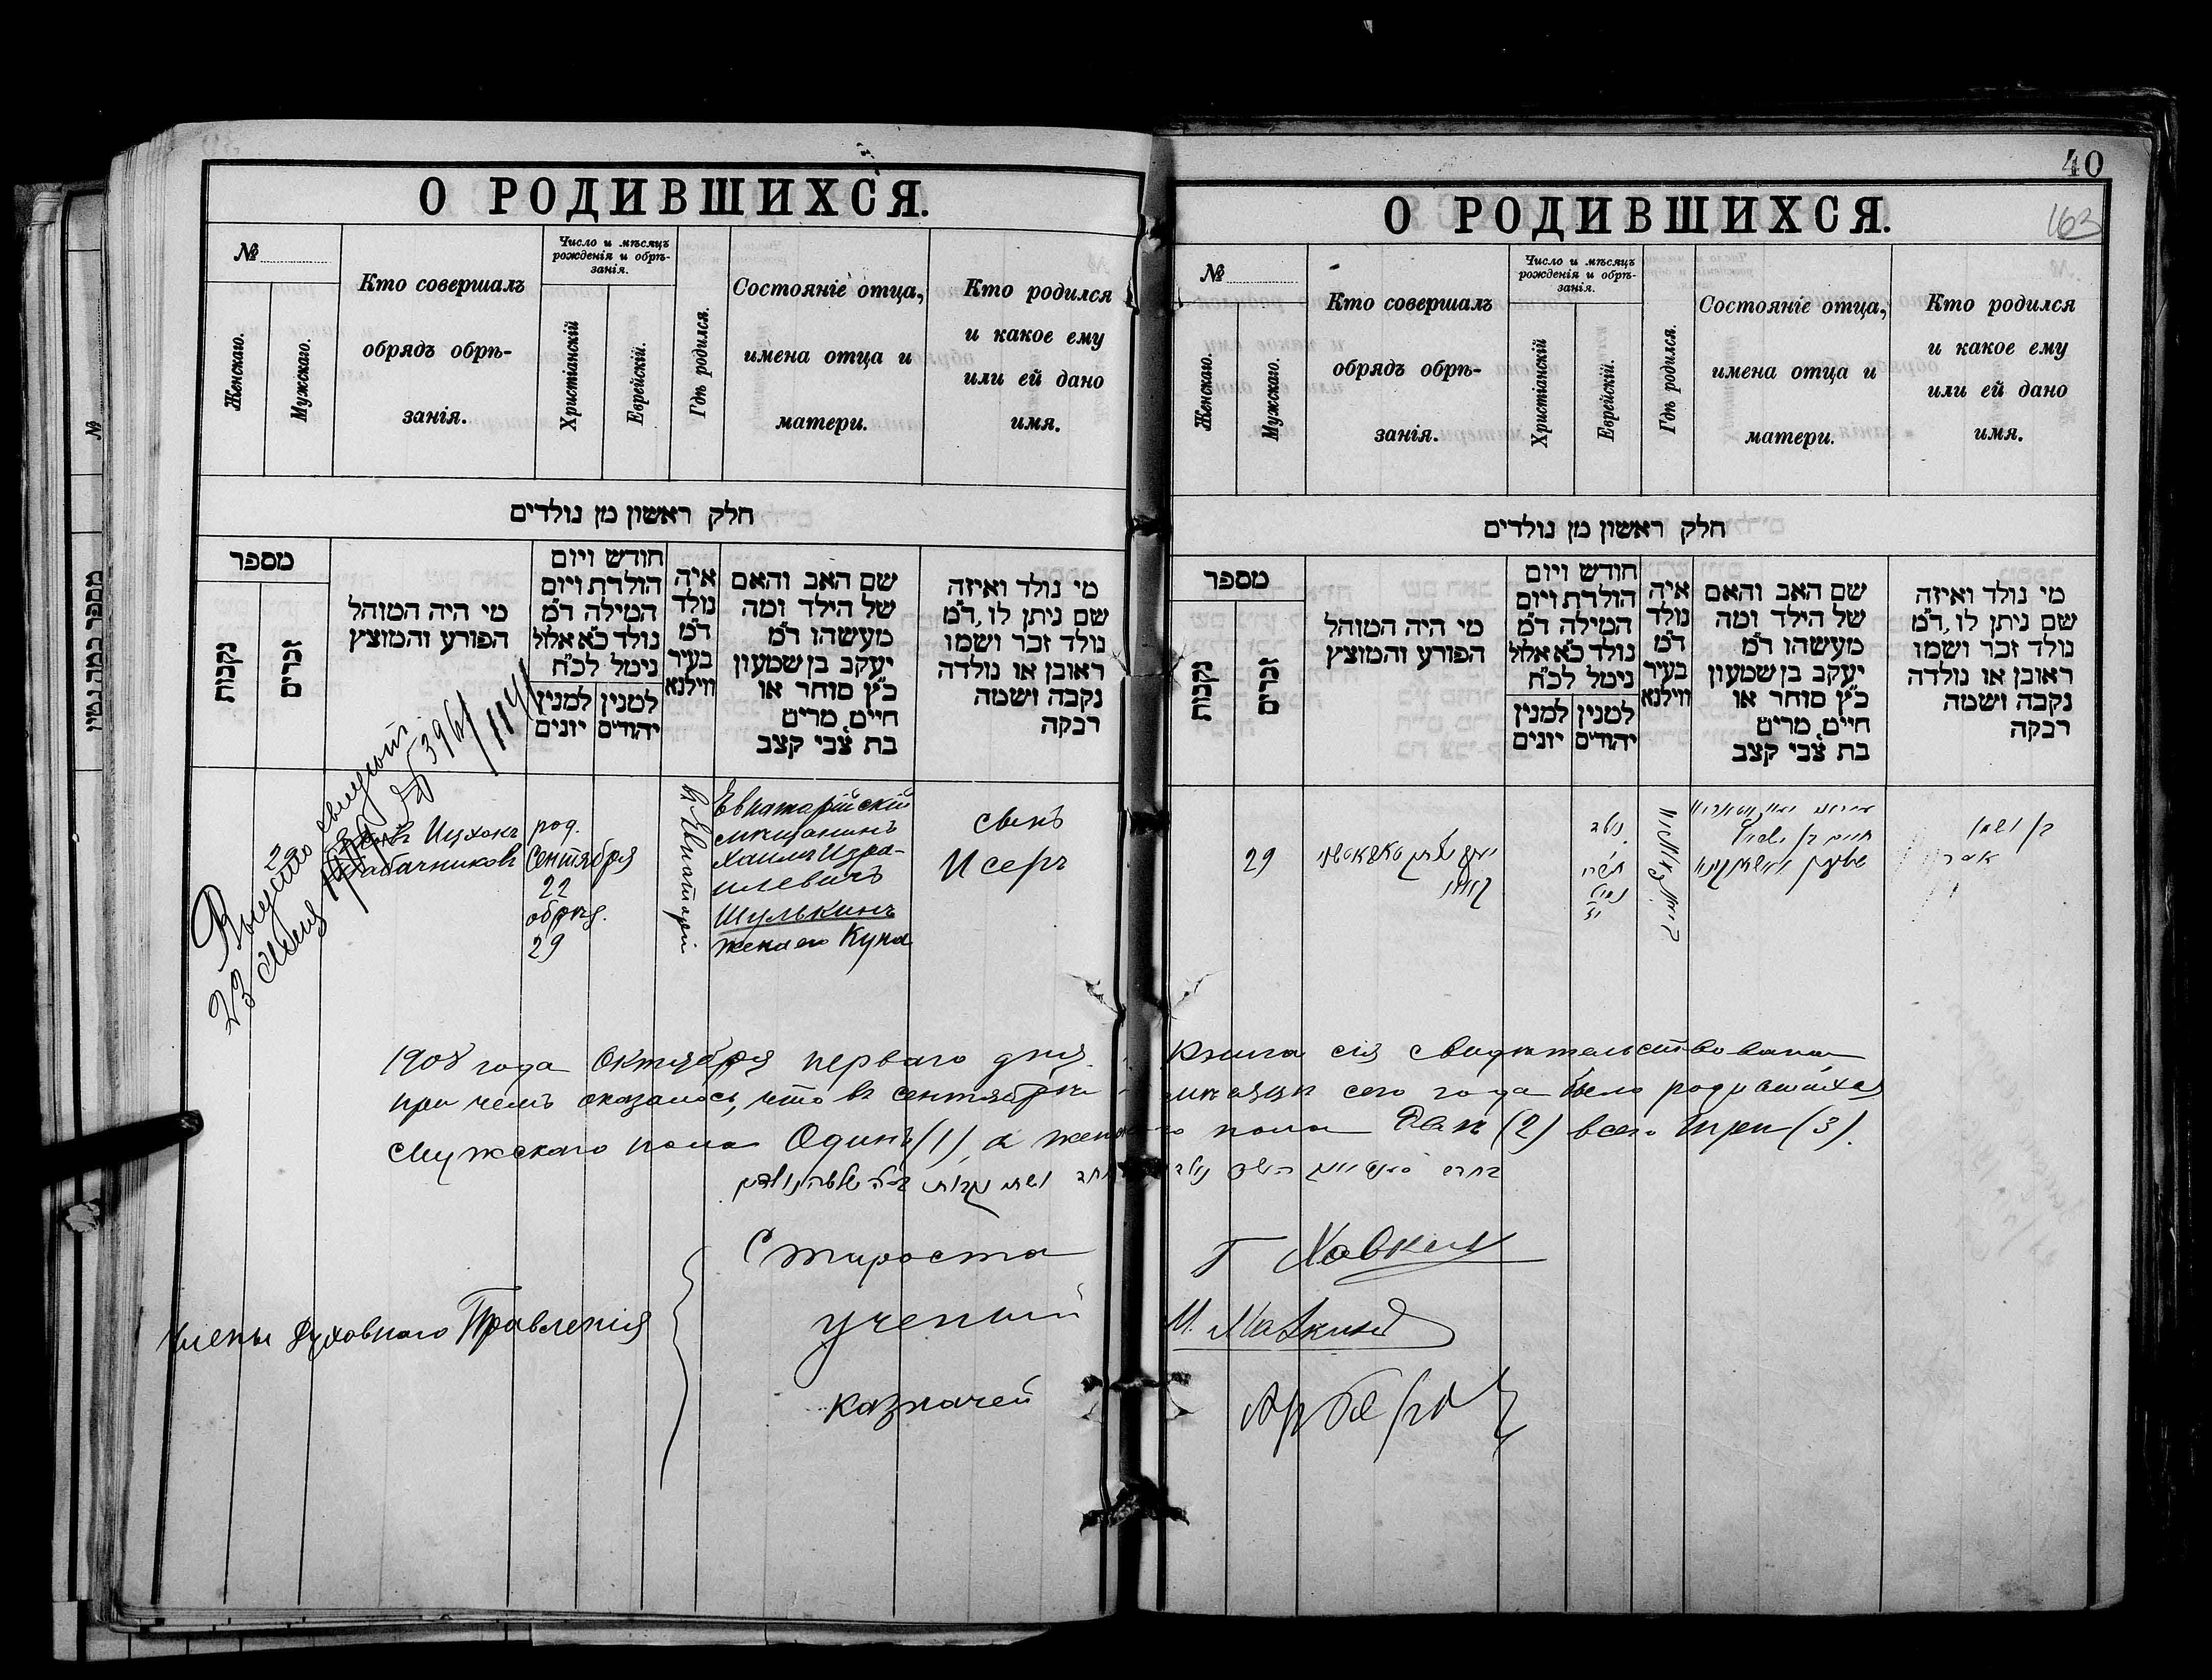 О РОДИВШИХСЯ.
№
Женскаго.
Мужскаго.
Кто совершалъ
обрядъ обрѣ-
занія.
Число и мѣсяцъ
рожденія и обрѣ-
занія.
Христіанскій
Еврейскій.
Гдѣ родился.
Состояніе отца,
имена отца и
матери.
Кто родился
и какое ему
или ей дано
имя.
חלק ראשון מן נולדים
מספר
נקבות
זכרים
מי היה המוהל
הפורע והמוצץ
חודש ויום
הולדת ויום
המילה ד״מ
נולד כ״א אלול
נימל לכ״ח
למנין למנין
יהודים יונים
איה
נולד
ד״מ
בעיר
ווילנא
שם האב והאם
של הילד ומה
מעשהו ד״מ
יעקב בן שמעון
כ״ץ סוחר או
חייט, מרים
בת צבי קצב
מי נולד ואיזה
שם ניתן לו, ד״מ
נולד זכר ושמו
ראובן או נולדה
נקבה ושמה
רבקה
23
29
Ицхокъ
Табачниковъ
род.
Сентября
22
обрѣз.
29
въ Евпаторіи
Евпаторійскій
мѣщанинъ
Хаимъ Изра-
илевичъ
Шулькинъ
жена его Куна
сынъ
Исеръ
40
163
О РОДИВШИХСЯ.
№
Женскаго.
Мужскаго.
Кто совершалъ
обрядъ обрѣ-
занія.
Число и мѣсяцъ
рожденія и обрѣ-
занія.
Христіанскій
Еврейскій.
Гдѣ родился.
Состояніе отца,
имена отца и
матери.
Кто родился
и какое ему
или ей дано
имя.
חלק ראשון מן נולדים
מספר
נקבות
זכרים
מי היה המוהל
הפורע והמוצץ
חודש ויום
הולדת ויום
המילה ד״מ
נולד כ״א אלול
נימל לכ״ח
למנין למנין
יהודים יונים
איה
נולד
ד״מ
בעיר
ווילנא
שם האב והאם
של הילד ומה
מעשהו ד״מ
יעקב בן שמעון
כ״ץ סוחר או
חייט, מרים
בת צבי קצב
מי נולד ואיזה
שם ניתן לו, ד״מ
נולד זכר ושמו
ראובן או נולדה
נקבה ושמה
רבקה
29
נולד
תשרי
בן ושמו
1908 года Октября перваго дня книга сія свидѣтельствована
при чемъ оказалось, что въ сентябрѣ мѣсяцѣ сего года было родившихся
мужскаго пола Одинъ (1), а женскаго пола Двѣ (2) всего три (3).
Члены Духовнаго Правленія
Староста Г Хавкин
ученый М.
казначей